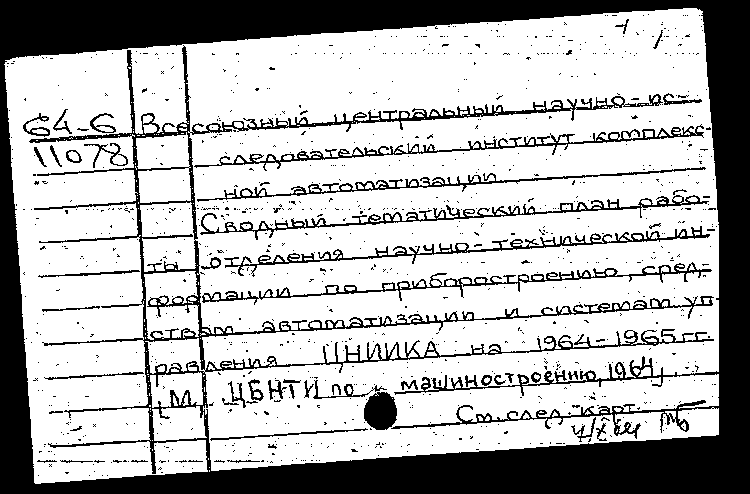 64-6 Всесоюзный центральный научно-ис-
11078 следовательский институт комплекс-
ной автоматизации.
Сводный тематический план рабо-
ты отделения научно-технической ин-
формации по приборостроению, сред-
ствам автоматизации и системам уп-
равления ЦНИИКА на 1964-1965 гг.
[М., ЦБНТИ по машиностроению, 1964]
См. след. карт.